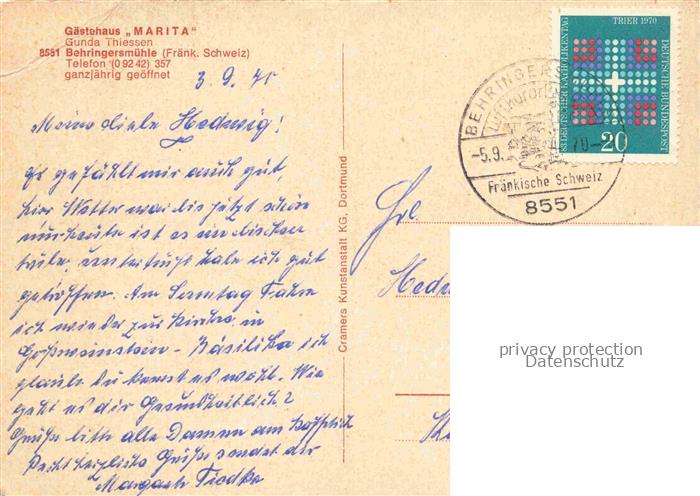 Gästehaus „MARITA"
Gunda Thiessen
8551 Behringersmühle (Fränk. Schweiz)
Telefon (0 92 42) 357
ganzjährig geöffnet
3. 9. 70
Meine liebe Hedwig!
Es gefählt mir auch gut,
hier Wetter war bis jetzt schön
nur heute ist es ein bischen
trübe, Unterkunft habe ich gut
getroffen. Am Sonntag Fahre
ich wieder zur Kirche in
Gößweinstein - Basilika ich
glaube du kennst es wohl. Wie
geht es dir Gesundheitlich?
Grüße bitte alle Damen am
Recht herzliche Grüße sendet dir
Margarete
Cramers Kunstanstalt KG, Dortmund
Frl.
BEHRINGERS
Luftkurort
-5.9.
70-
Fränkische Schweiz
8551
83. DEUTSCHER KATHOLIKENTAG
TRIER 1970
DEUTSCHE BUNDESPOST
20
privacy protection
Datenschutz